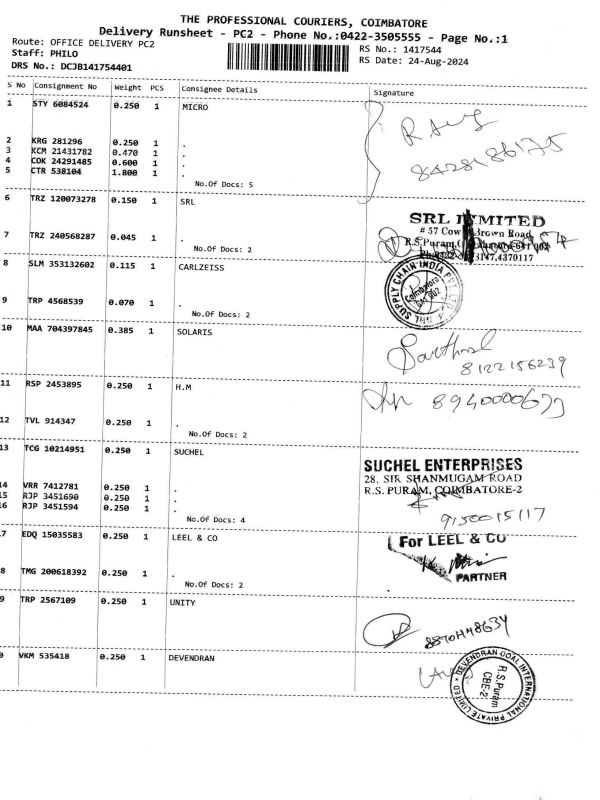 THE PROFESSIONAL COURIERS, COIMBATORE
Delivery Runsheet - PC2 - Phone No.:0422-3505555 - Page No.:1
Route: OFFICE DELIVERY PC2
Staff: PHILO
DRS No.: DCJB141754401
RS No.: 1417544
RS Date: 24-Aug-2024
S No Consignment No Weight PCS Consignee Details Signature
1 STY 6084524 0.250 1 MICRO
2 KRG 281296 0.250 1 .
3 KCM 21431782 0.470 1 .
4 COK 24291485 0.600 1 .
5 CTR 538104 1.800 1 .
No.Of Docs: 5
8428186175
6 TRZ 120073278 0.150 1 SRL
7 TRZ 240568287 0.045 1 .
No.Of Docs: 2
SRL LIMITED
# 57 Cow Brown Road,
R.S.Puram,
8 SLM 353132602 0.115 1 CARLZEISS
9 TRP 4568539 0.070 1 .
No.Of Docs: 2
SUPPLY CHAIN INDIA PVT
Coimbatore
641 002
10 MAA 704397845 0.385 1 SOLARIS
8122156239
11 RSP 2453895 0.250 1 H.M
12 TVL 914347 0.250 1 .
No.Of Docs: 2
13 TCG 10214951 0.250 1 SUCHEL
14 VRR 7412781 0.250 1 .
15 RJP 3451690 0.250 1 .
16 RJP 3451594 0.250 1 .
No.Of Docs: 4
SUCHEL ENTERPRISES
28, SIR SHANMUGAM ROAD
R.S. PURAM, COIMBATORE-2
9150015117
7 EDQ 15035583 0.250 1 LEEL & CO
8 TMG 200618392 0.250 1 .
No.Of Docs: 2
For LEEL & CO
PARTNER
9 TRP 2567109 0.250 1 UNITY
0 VKM 535418 0.250 1 DEVENDRAN
DEVENDRAN COAL INTERNATIONAL PRIVATE LIMITED
R.S.Puram
CBE-2